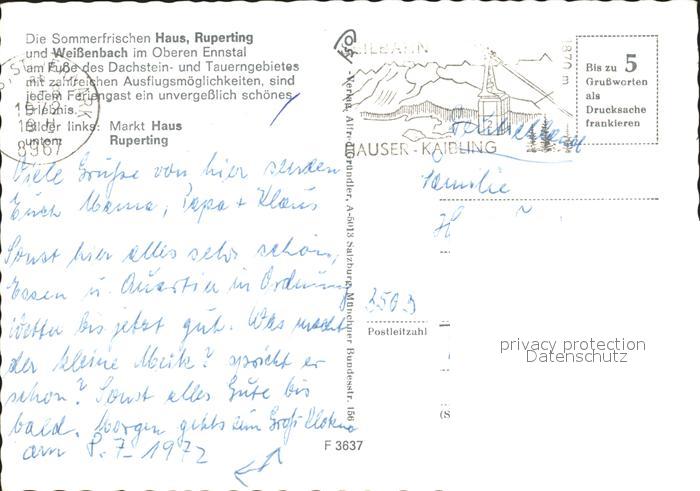 Die Sommerfrischen Haus, Ruperting
und Weißenbach im Oberen Ennstal
am Fuße des Dachstein- und Tauerngebietes
mit zahlreichen Ausflugsmöglichkeiten, sind
jedem Feriengast ein unvergeßlich schönes
Erlebnis.
Bilder links: Markt Haus
unten: Ruperting
8967
SEILBAHN
1870 m
HAUSER-KAIBLING
Bis zu 5
Grußworten
als
Drucksache
frankieren
Viele Grüße von hier senden
Euch Mama, Papa + Klaus
Sonst hier alles sehr schön,
Essen u. Quartier in Ordnung
Wetter bis jetzt gut. Was macht
der kleine Meik? spricht er
schon? Sonst alles Gute bis
bald. Morgen gehts zum Groß-Glockner
am 8.7-1972
Verlag Alfred Gründler, A-5013 Salzburg, Münchner Bundesstr. 156
Familie
H
3509
Postleitzahl
(S
F 3637
privacy protection
Datenschutz